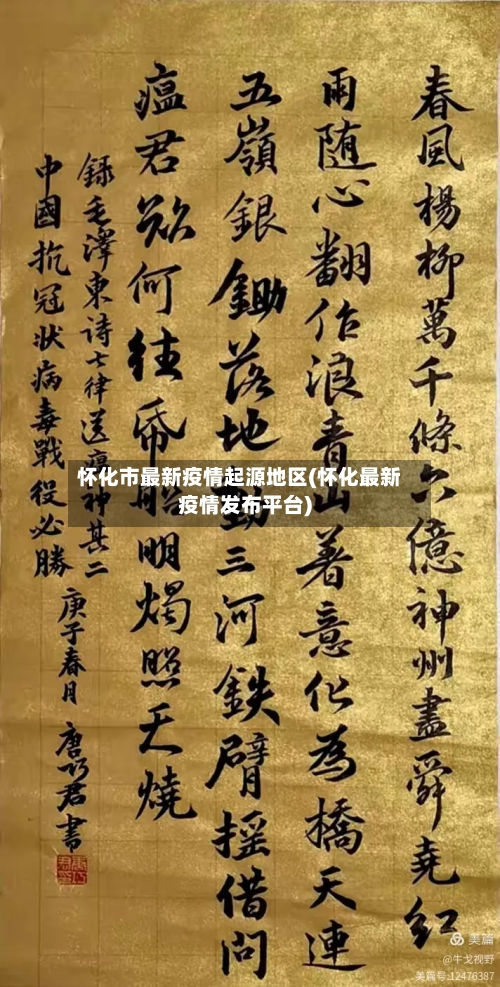 春風楊柳萬千條六億神州盡舜堯紅
雨随心翻作浪青山著意化為橋天連
五嶺銀鋤落地動三河鉄臂摇借問
瘟君欲何往帋船明燭照天燒
錄毛澤東诗七律送瘟神其二
中國抗冠状病毒戰役必勝
庚子春月 唐君書
怀化市最新疫情起源地区(怀化最新
疫情发布平台)
美篇
@牛戈视野
美篇号:12476387